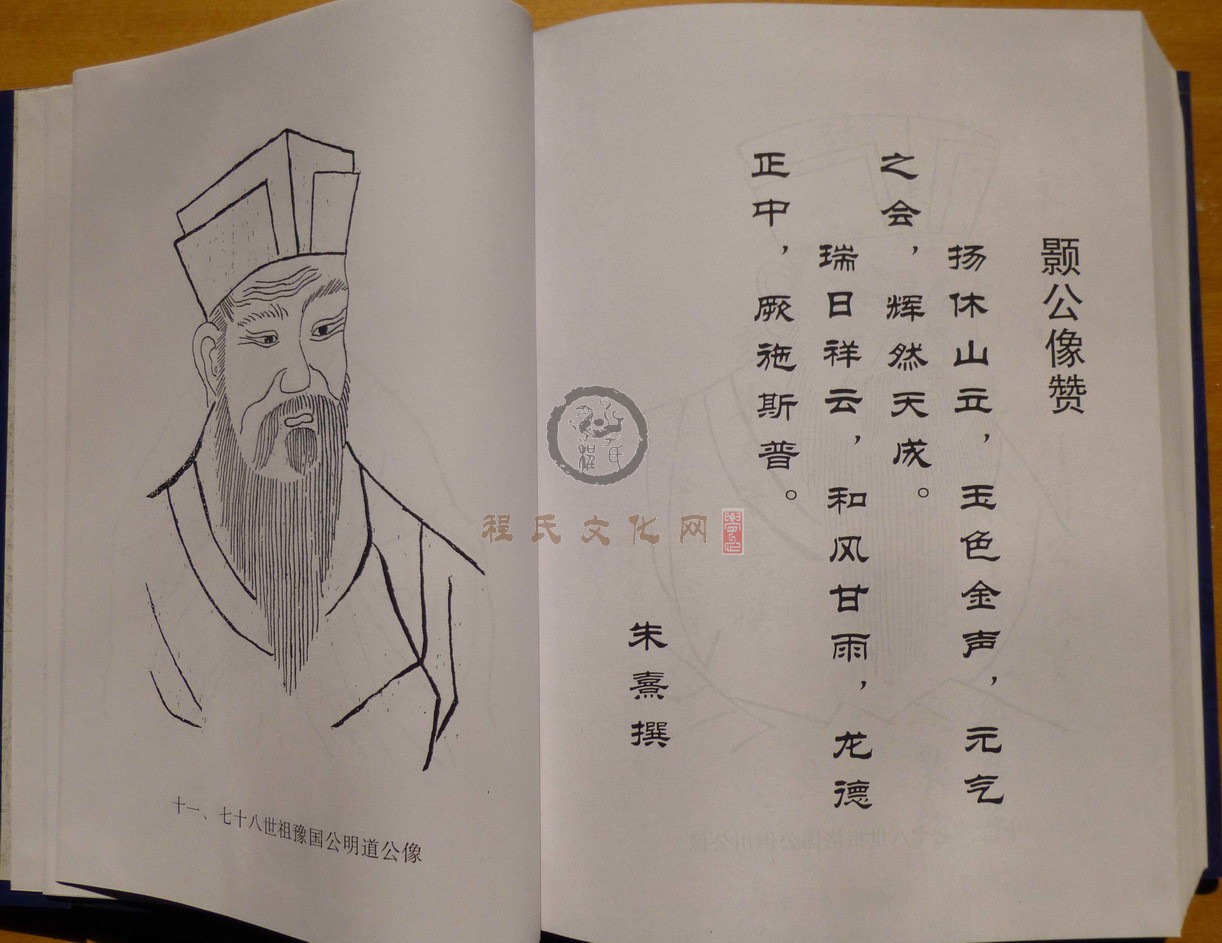 颢公像赞
扬休山立，玉色金声，元气
之会，辉然天成。
瑞日祥云，和风甘雨，龙德
正中，厥施斯普。
朱熹撰
十一、七十八世祖豫国公明道公像
程氏文化网